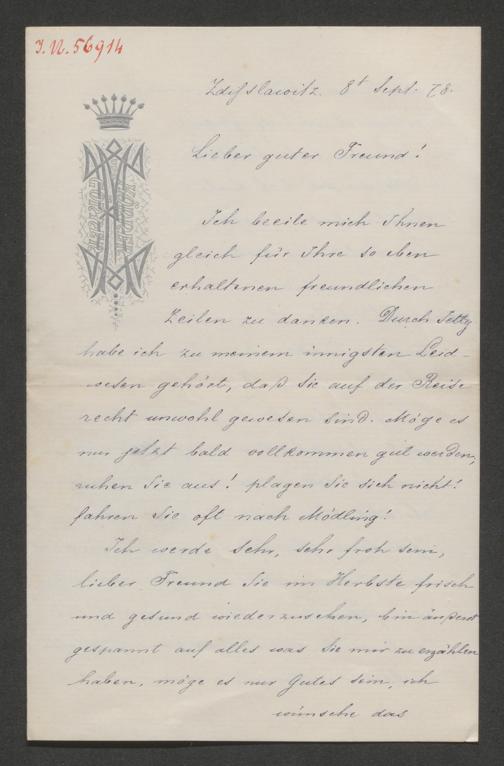 I.N. 56914
Zdißlawitz 8t Sept. 78.
Lieber guter Freund!
Ich beeile mich Ihnen
gleich für Ihre so eben
erhaltenen freundlichen
Zeilen zu danken. Durch Jetty
habe ich zu meinem innigsten Leid-
wesen gehört, daß Sie auf der Reise
recht unwohl gewesen sind. Möge es
nun jetzt bald vollkommen gut werden,
ruhen Sie aus! plagen Sie sich nicht!
fahren Sie oft nach Mödling!
Ich werde sehr, sehr froh sein,
lieber Freund Sie im Herbste frisch
und gesund wiederzusehen, bin äußerst
gespannt auf alles was Sie mir zu erzählen
haben, möge es nur Gutes sein, ich
wünsche das